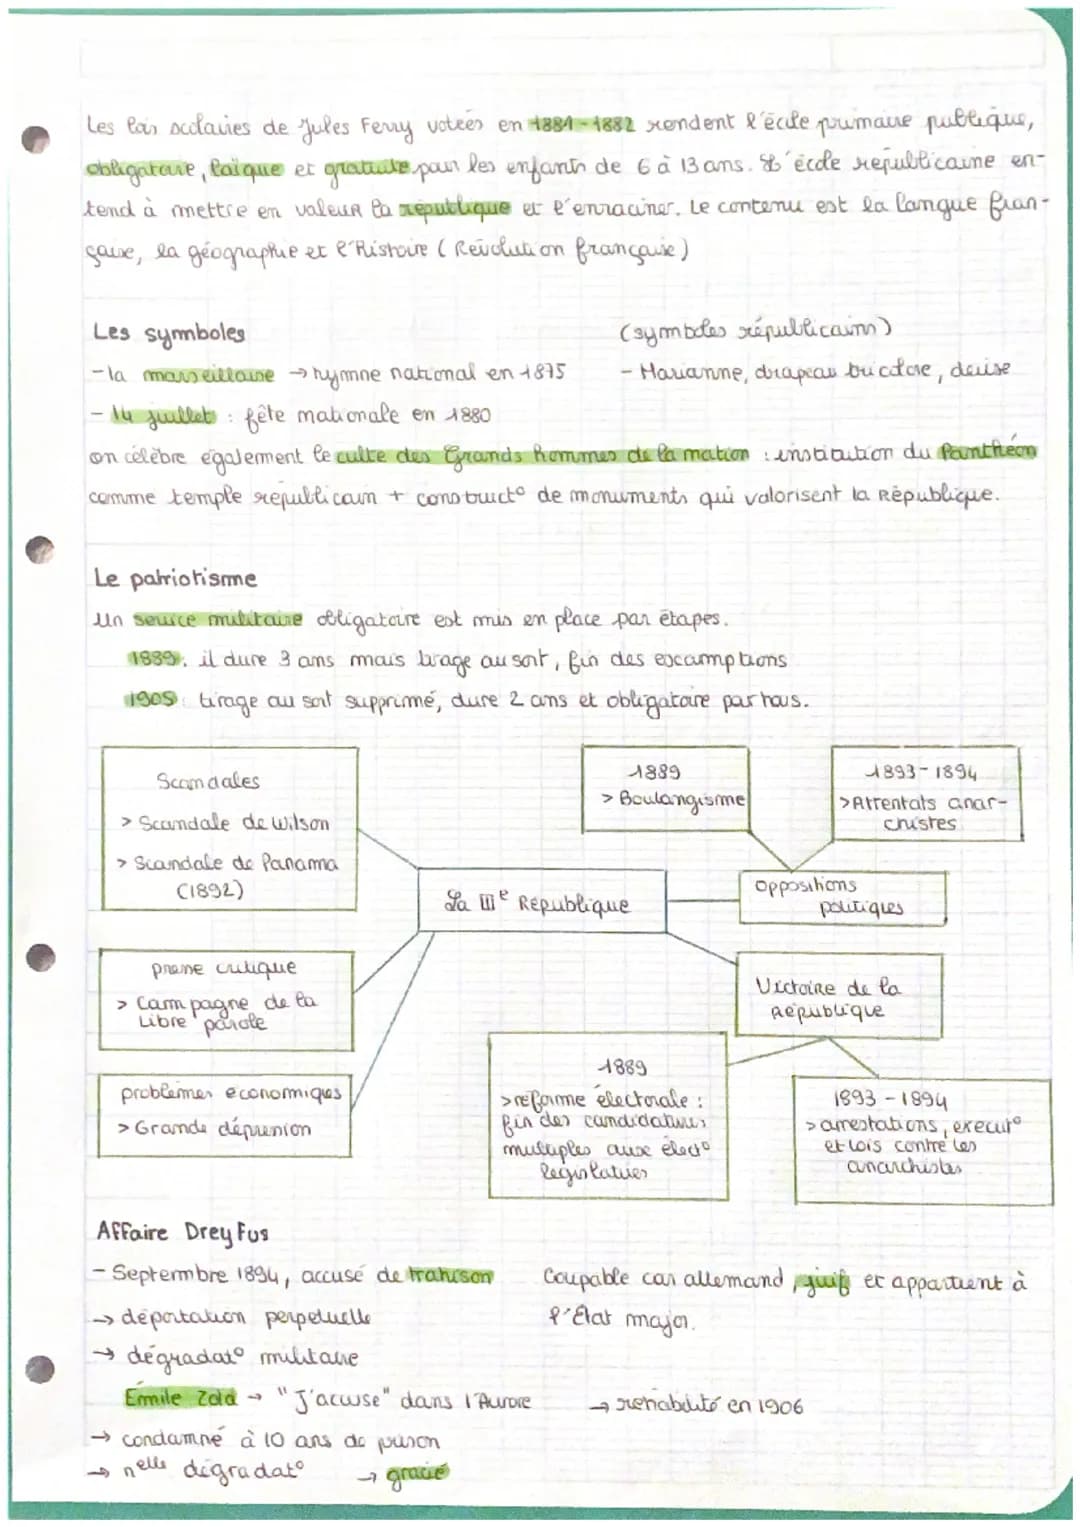 Les lois scolaires de Jules Ferry votées en 1881-1882 rendent l'école primaire publique,
obligatoire, laïque et gratuite pour les enfants de 6 à 13 ans. L'école républicaine en-
tend à mettre en valeur la république et l'enraciner. Le contenu est la langue fran-
çaise, la géographie et l'histoire (Révolution française)
Les symboles
(symboles républicains)
- la marseillaise → hymne national en 1875
- Marianne, drapeau tricolore, devise
- 14 juillet : fête nationale en 1880
on célèbre également le culte des Grands hommes de la nation : institution du Panthéon
comme temple républicain + construct° de monuments qui valorisent la République.
Le patriotisme
Un service militaire obligatoire est mis en place par étapes.
1889: il dure 3 ans mais tirage au sort, fin des excamptions
1905: tirage au sort supprimé, dure 2 ans et obligatoire par tous.
Scandales
> Scandale de Wilson
> Scandale de Panama
(1892)
1889
> Boulangisme
1893-1894
> Attentats anar-
chistes
La IIIe République
oppositions
politiques
presse critique
> Campagne de la
Libre parole
Victoire de la
République
problèmes économiques
> Grande dépression
1889
> réforme électorale :
fin des candidatures
multiples aux élect°
législatives
1893-1894
> arrestations, execut°
et lois contre les
anarchistes
Affaire Dreyfus
- Septembre 1894, accusé de trahison
Coupable car allemand, juif et appartient à
l'Etat major.
→ déportation perpetuelle
→ dégradat° militaire
Emile Zola → "J'accuse" dans l'Aurore
→ réhabilité en 1906
→ condamné à 10 ans de prison
→ nelle dégradat° → gracié